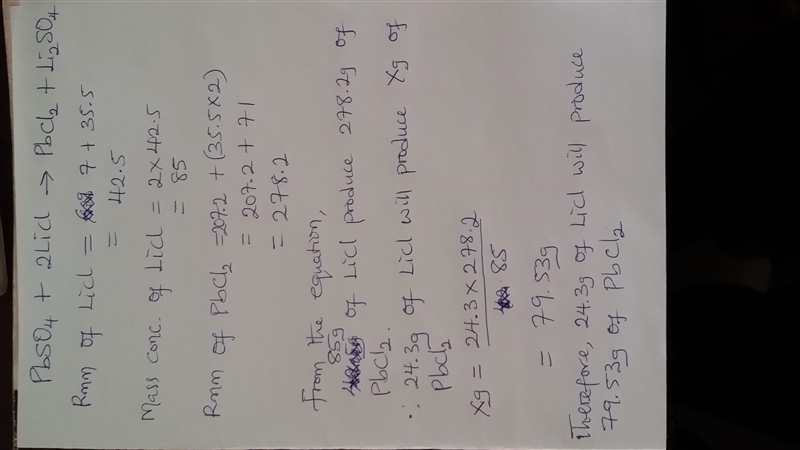 PbSO₄ + 2Licl → PbCl₂ + Li₂SO₄
Rmm of Licl = 7 + 35.5
= 42.5
Mass conc. of Licl = 2 x 42.5
= 85
Rmm of PbCl₂ = 207.2 + (35.5 x 2)
= 207.2 + 71
= 278.2
From the equation,
85g of Licl produce 278.2g of
PbCl₂.
∴ 24.3g of Licl will produce Xg of
PbCl₂
Xg = 24.3 x 278.2
85
= 79.53g
Therefore, 24.3g of Licl will produce
79.53g of PbCl₂.